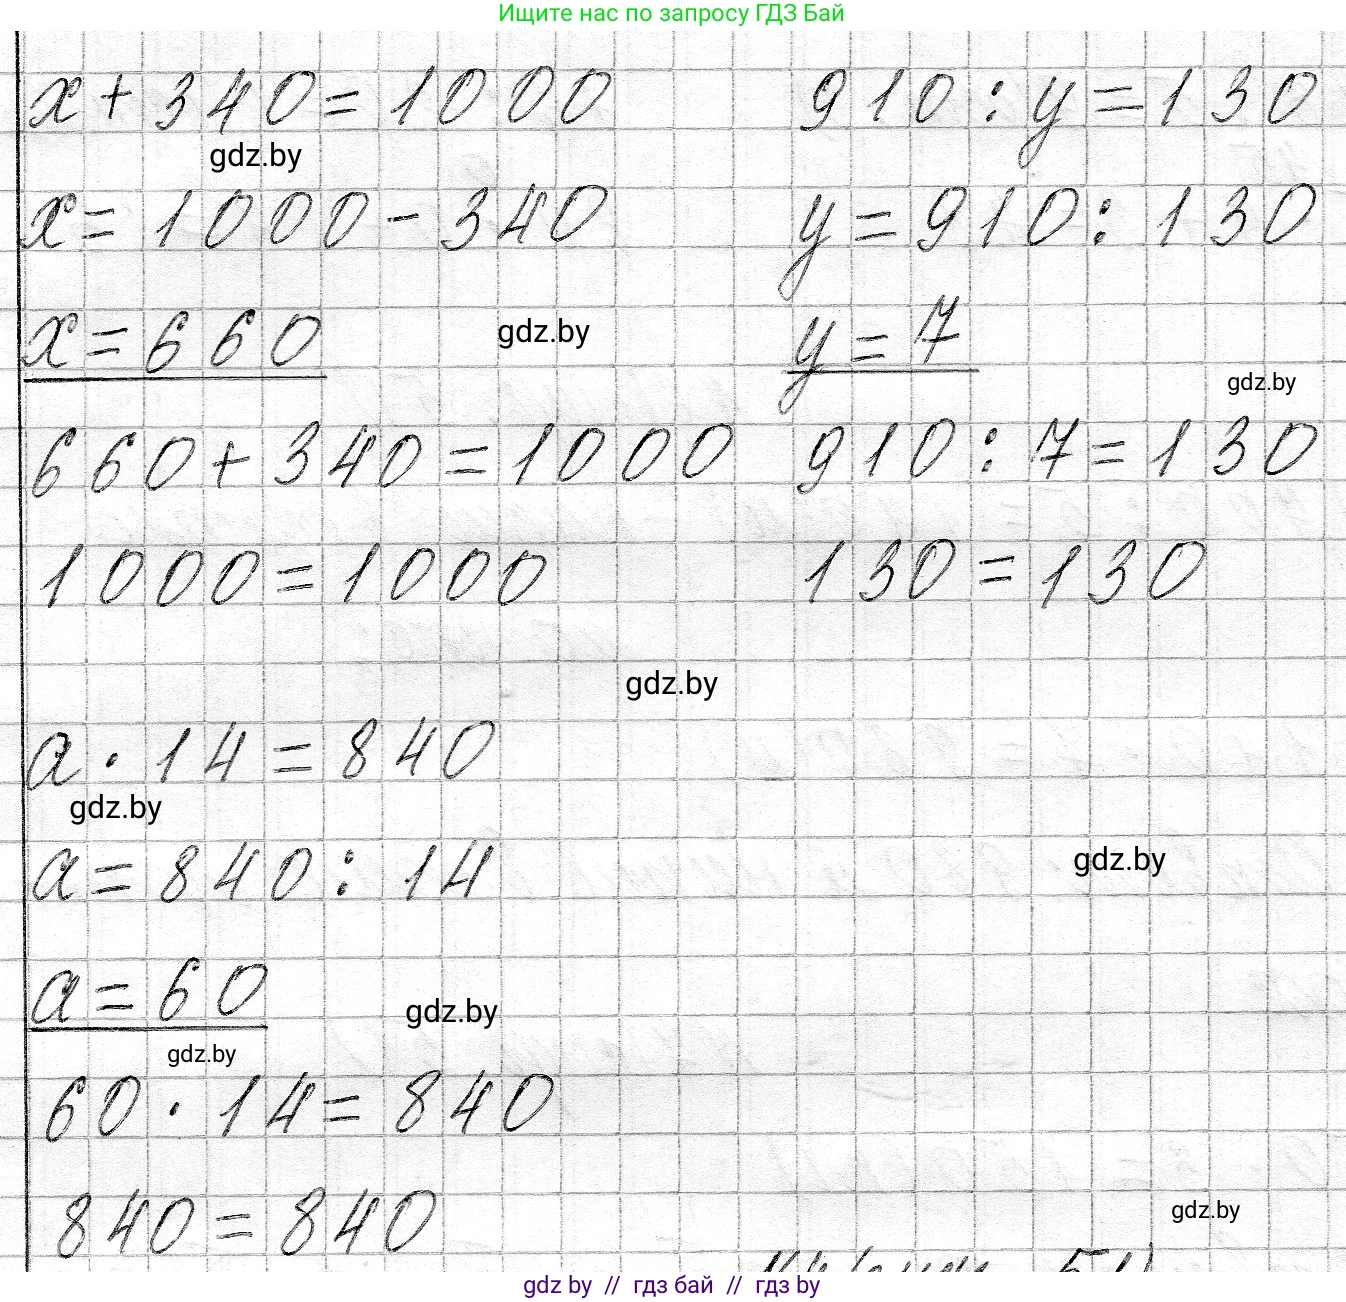 Ищите нас по запросу ГДЗ Бай
x + 340 = 1000
910 : y = 130
gdz.by
x = 1000 - 340
y = 910 : 130
x = 660
gdz.by
y = 7
gdz.by
660 + 340 = 1000
910 : 7 = 130
1000 = 1000
130 = 130
gdz.by
a · 14 = 840
gdz.by
a = 840 : 14
gdz.by
a = 60
gdz.by
gdz.by
60 · 14 = 840
840 = 840
gdz.by
gdz by // гдз бай // гдз by